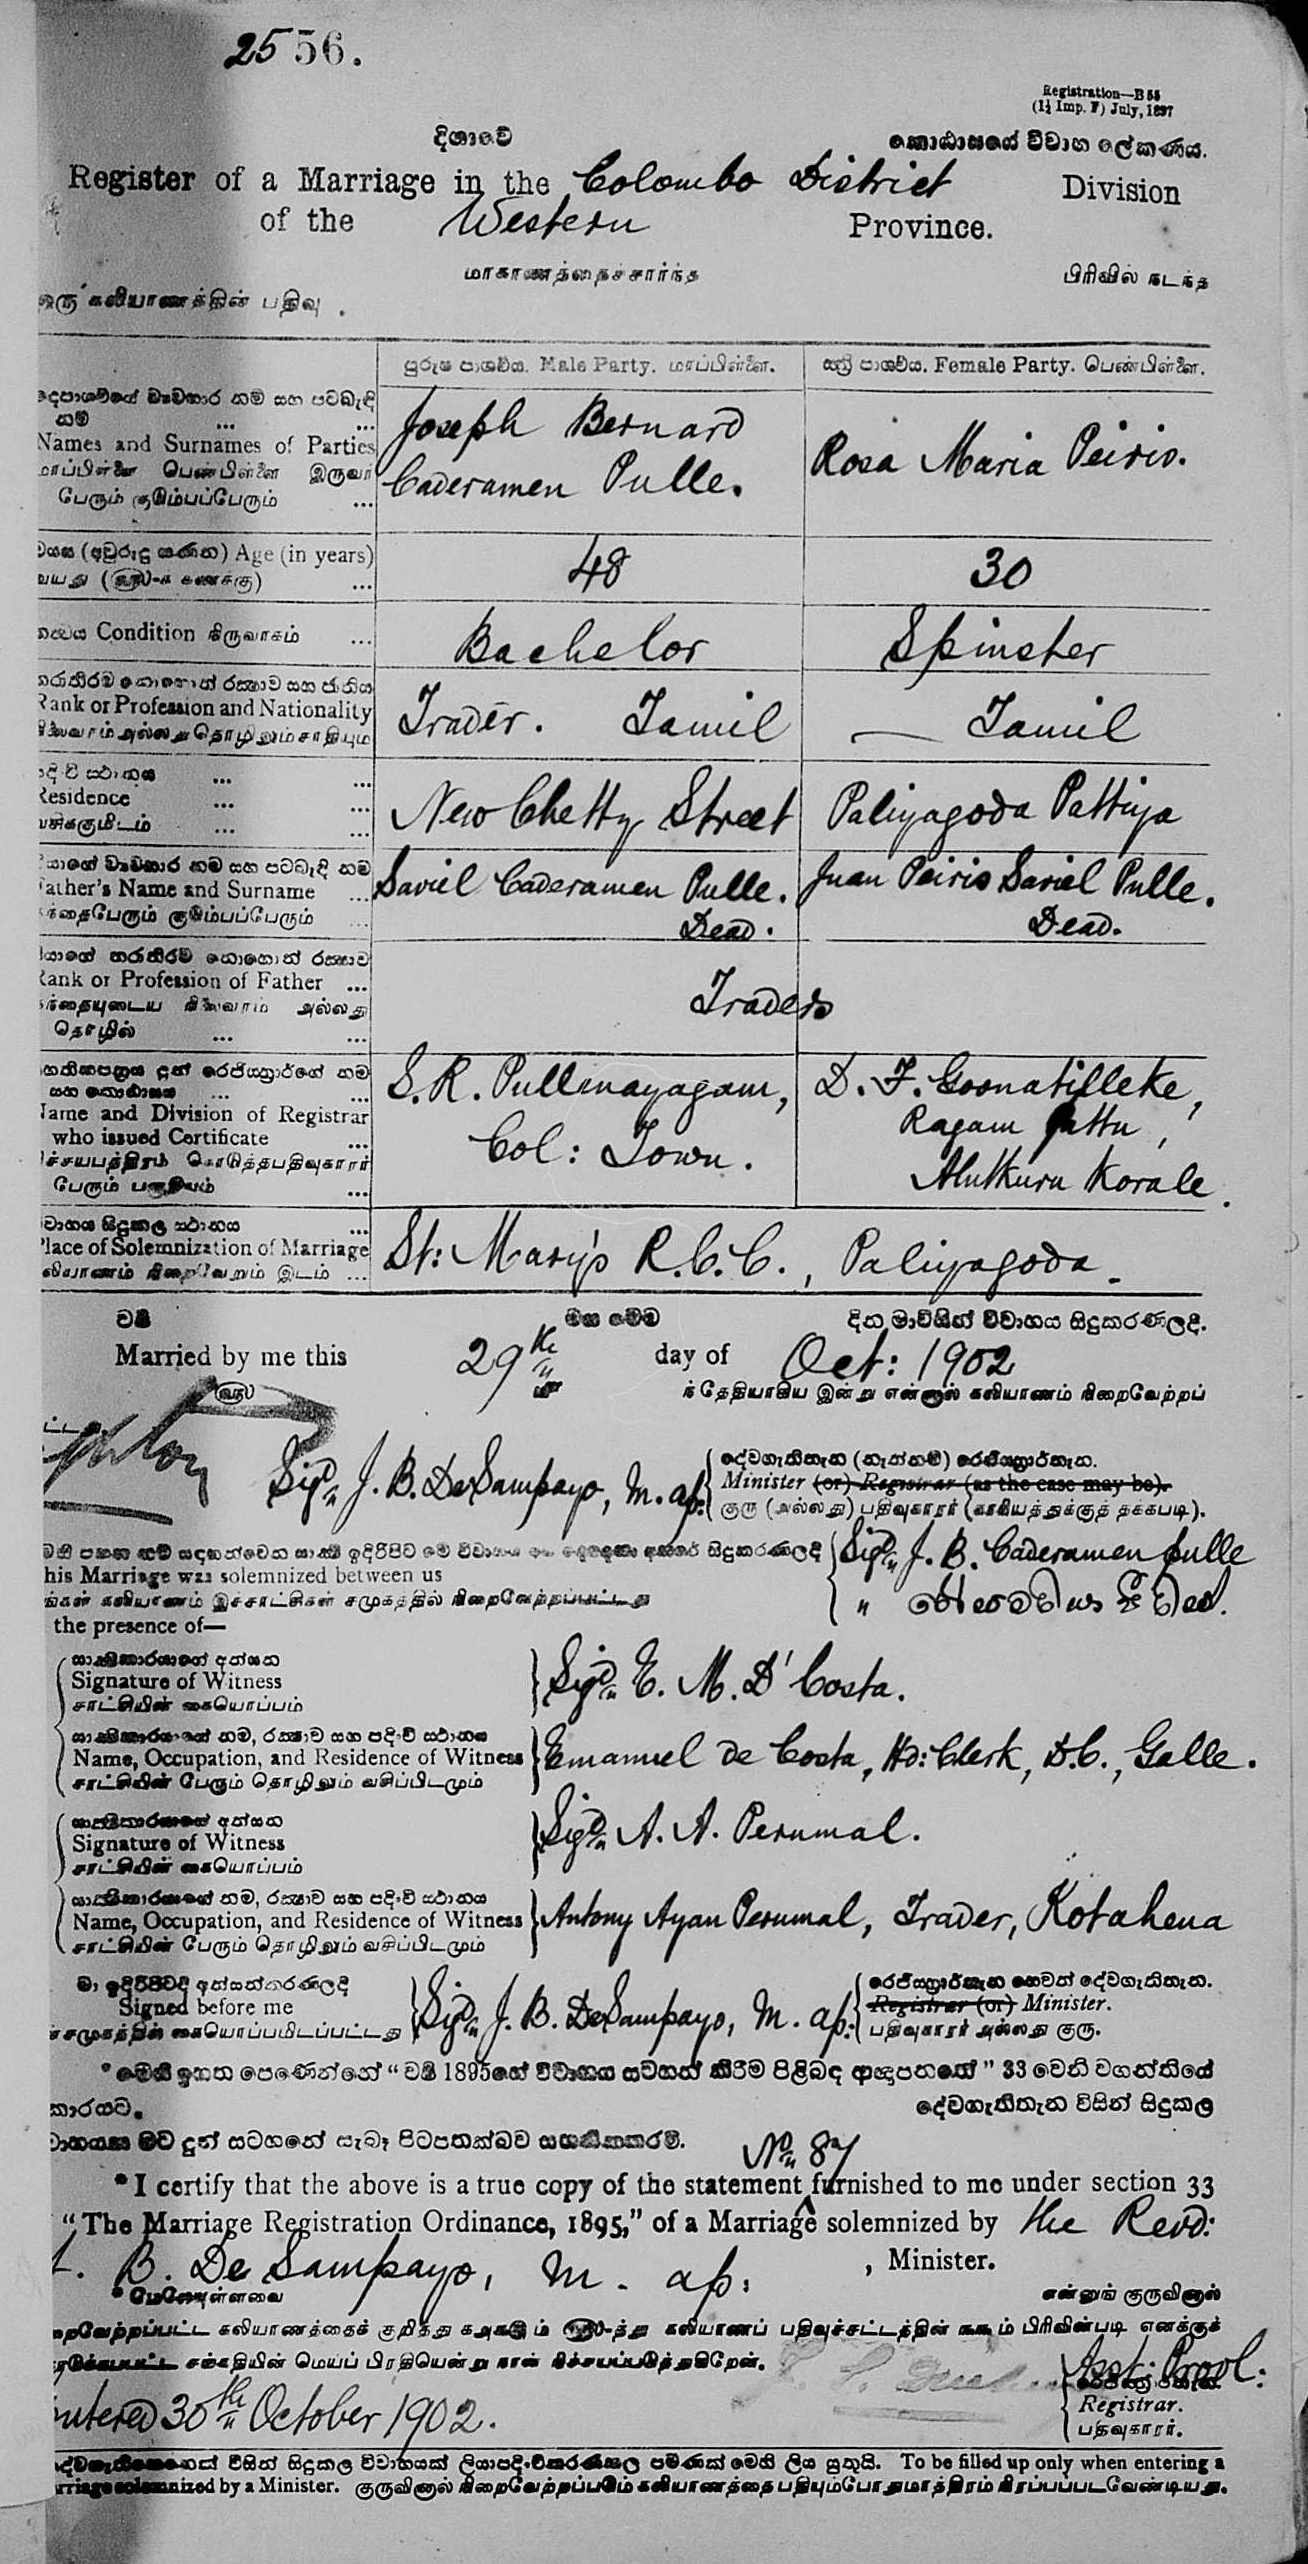 2556.
Registration—B 55
(1½ Imp. F) July, 1897
දිශාවේ කොට්ඨාසයේ විවාහ ලේකණය.
Register of a Marriage in the Colombo District Division
of the Western Province.
மாகாணத்தைச்சார்ந்த பிரிவில் நடந்த
ஒரு கலியாணத்தின் பதிவு
පුරුෂ පාර්ශවය. Male Party. மாப்பிள்ளை. ස්ත්‍රී පාර්ශවය. Female Party. பெண்பிள்ளை.
දෙපාර්ශවයේ ව්‍යවහාර නම් සහ පටබැඳි
නම් ... ...
Names and Surnames of Parties
மாப்பிள்ளை பெண்பிள்ளை இருவர்
பேரும் குடும்பப்பேரும் ...
Joseph Bernard
Caderamen Pulle.
Rosa Maria Peiris.
වයස (අවුරුදු ගණන) Age (in years)
வயது (வரு)-க கணக்கு) ...
48 30
Condition நிருவாகம் ...
Bachelor Spinster
Rank or Profession and Nationality
Trader. Tamil — Tamil
පදිංචි ස්ථානය ... ...
Residence ... ...
வசிக்குமிடம் ... ...
New Chetty Street Paliyagoda Pattiya
පියාගේ ව්‍යවහාර නම සහ පටබැඳි නම
Father's Name and Surname ...
தந்தைபேரும் குடும்பப்பேரும் ...
Saviel Caderamen Pulle.
Dead.
Juan Peiris Saviel Pulle.
Dead.
Rank or Profession of Father ...
தந்தையுடைய நிலைவரம் அல்லது
தொழில் ... ...
Traders
Name and Division of Registrar
who issued Certificate ...
நிச்சயபத்திரம் கொடுத்தபதிவுகாரர்
பேரும் பகுதியும் ...
S. R. Pullenayagam,
Col: Town.
D. F. Goonatilleke,
Ragam Pattu,
Alutkuru Korale.
විවාහය සිදුකල ස්ථානය ...
Place of Solemnization of Marriage
கலியாணம் நிறைவேறும் இடம் ...
St: Mary's R. C. C., Paliyagoda.
වර්ෂ මස මෙම දින මාවිසින් විවාහය සිදුකරණලදි.
Married by me this 29th day of Oct: 1902
ந் தேதியாகிய இன்று என்னால் கலியாணம் நிறைவேற்றப்
Sigd. J. B. De Sampayo, M. ap:
දේවගැතිතැන (නැත්නම්) රෙජිස්ත්‍රාර්තැන.
Minister (or) Registrar (as the case may be).
குரு (அல்லது) பதிவுகாரர் (காரியத்துக்குத் தக்கபடி).
his Marriage was solemnized between us
ங்கள் கலியாணம் இச்சாட்சிகள் சமுகத்தில் நிறைவேற்றப்பட்டது
the presence of—
Sigd. J. B. Caderamen Pulle
" රෝස මරියා පීරිස්.
සාක්ෂිකාරයාගේ අත්සන
Signature of Witness
சாட்சியின் கையொப்பம்
Sigd. E. M. D'Costa.
සාක්ෂිකාරයාගේ නම, රක්ෂාව සහ පදිංචි ස්ථානය
Name, Occupation, and Residence of Witness
சாட்சியின் பேரும் தொழிலும் வசிப்பிடமும்
Emanuel de Costa, Hd: Clerk, D.C., Galle.
සාක්ෂිකාරයාගේ අත්සන
Signature of Witness
சாட்சியின் கையொப்பம்
Sigd. A. A. Perumal.
සාක්ෂිකාරයාගේ නම, රක්ෂාව සහ පදිංචි ස්ථානය
Name, Occupation, and Residence of Witness
சாட்சியின் பேரும் தொழிலும் வசிப்பிடமும்
Antony Ayan Perumal, Trader, Kotahena
මා ඉදිරිපිටදි අත්සන්කරණලදි
Signed before me
ச் சமுகத்தில் கையொப்பமிடப்பட்டது
Sigd. J. B. De Sampayo, M. ap:
රෙජිස්ත්‍රාර්තැන හෙවත් දේවගැතිතැන.
Registrar (or) Minister.
பதிவுகாரர் அல்லது குரு.
* මෙහි ඉහත පෙණෙන්නේ “වර්ෂ 1895ගේ විවාහය සටහන් කිරීම පිළිබඳ ආඥාපනතේ” 33 වෙනි වගන්තියේ
කාරයට. දේවගැතිතැන විසින් සිදුකල
වාහයක මට දුන් සටහනේ සැබෑ පිටපතක්බව සහතිකකරමි.
No. 87
* I certify that the above is a true copy of the statement ^ furnished to me under section 33
“The Marriage Registration Ordinance, 1895,” of a Marriage solemnized by the Revd:
J. B. De Sampayo, M. ap: , Minister.
* மேலேயுள்ளவை என்னுங் குருவினால்
றைவேற்றப்பட்ட கலியாணத்தைக் குறித்து கஅகூடும் வரு-த்து கலியாணப் பதிவுச்சட்டத்தின் ௩௩ம் பிரிவின்படி எனக்குக்
கொடுக்கப்பட்ட சங்கதியின் மெய்ப் பிரதியென்று நான் நிச்சயப்படுத்துகிறேன்.
Asst: Provl:
Registrar.
பதிவுகாரர்.
Entered 30th October 1902.
To be filled up only when entering a
arriage solemnized by a Minister. குருவினால் நிறைவேற்றப்படும் கலியாணத்தை பதியும்போது மாத்திரம் நிரப்பப்படவேண்டியது.